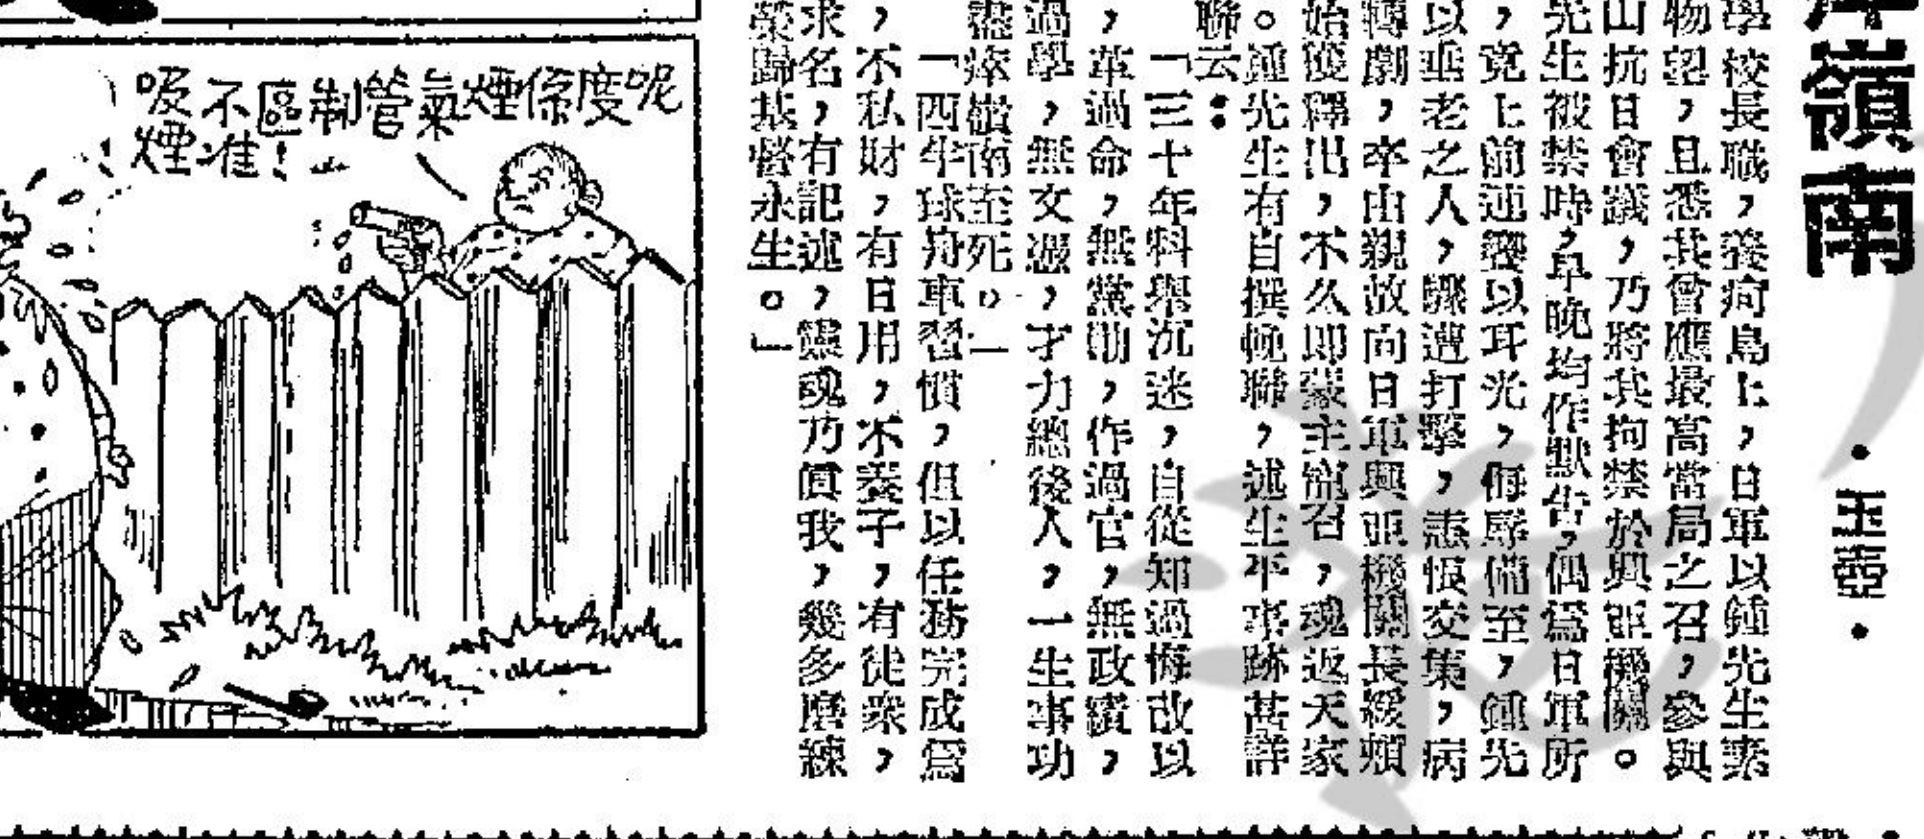 嶺南
·玉壺·
學校長職，養疴島上，日軍以鍾先生素
物望，且悉其曾應最高當局之召，參與
山抗日會議，乃將其拘禁於興亞機關。
先生被禁時，早晚均作默告，偶爲日軍所
，竟上前連饗以耳光，侮辱備至，鍾先
以垂老之人，驟遭打擊，恚恨交集，病
轉劇，卒由親故向日軍興亞機關長緩頰
始獲釋出，不久即蒙主寵召，魂返天家
。鍾先生有自撰輓聯，述生平事跡甚詳
聯云：
「三十年科舉沉迷，自從知過悔改以
，革過命，無黨勳，作過官，無政績，
過學，無女憑，才力絕後人，一生事功
盡瘁嶺南至死。」
「四半球舟車習慣，但以任務完成爲
，不私財，有日用，不養子，有徒衆，
求名，有記述，靈魂乃眞我，幾多磨練
榮歸基督永生。」
呢度係煙氣管制區不准吸煙！